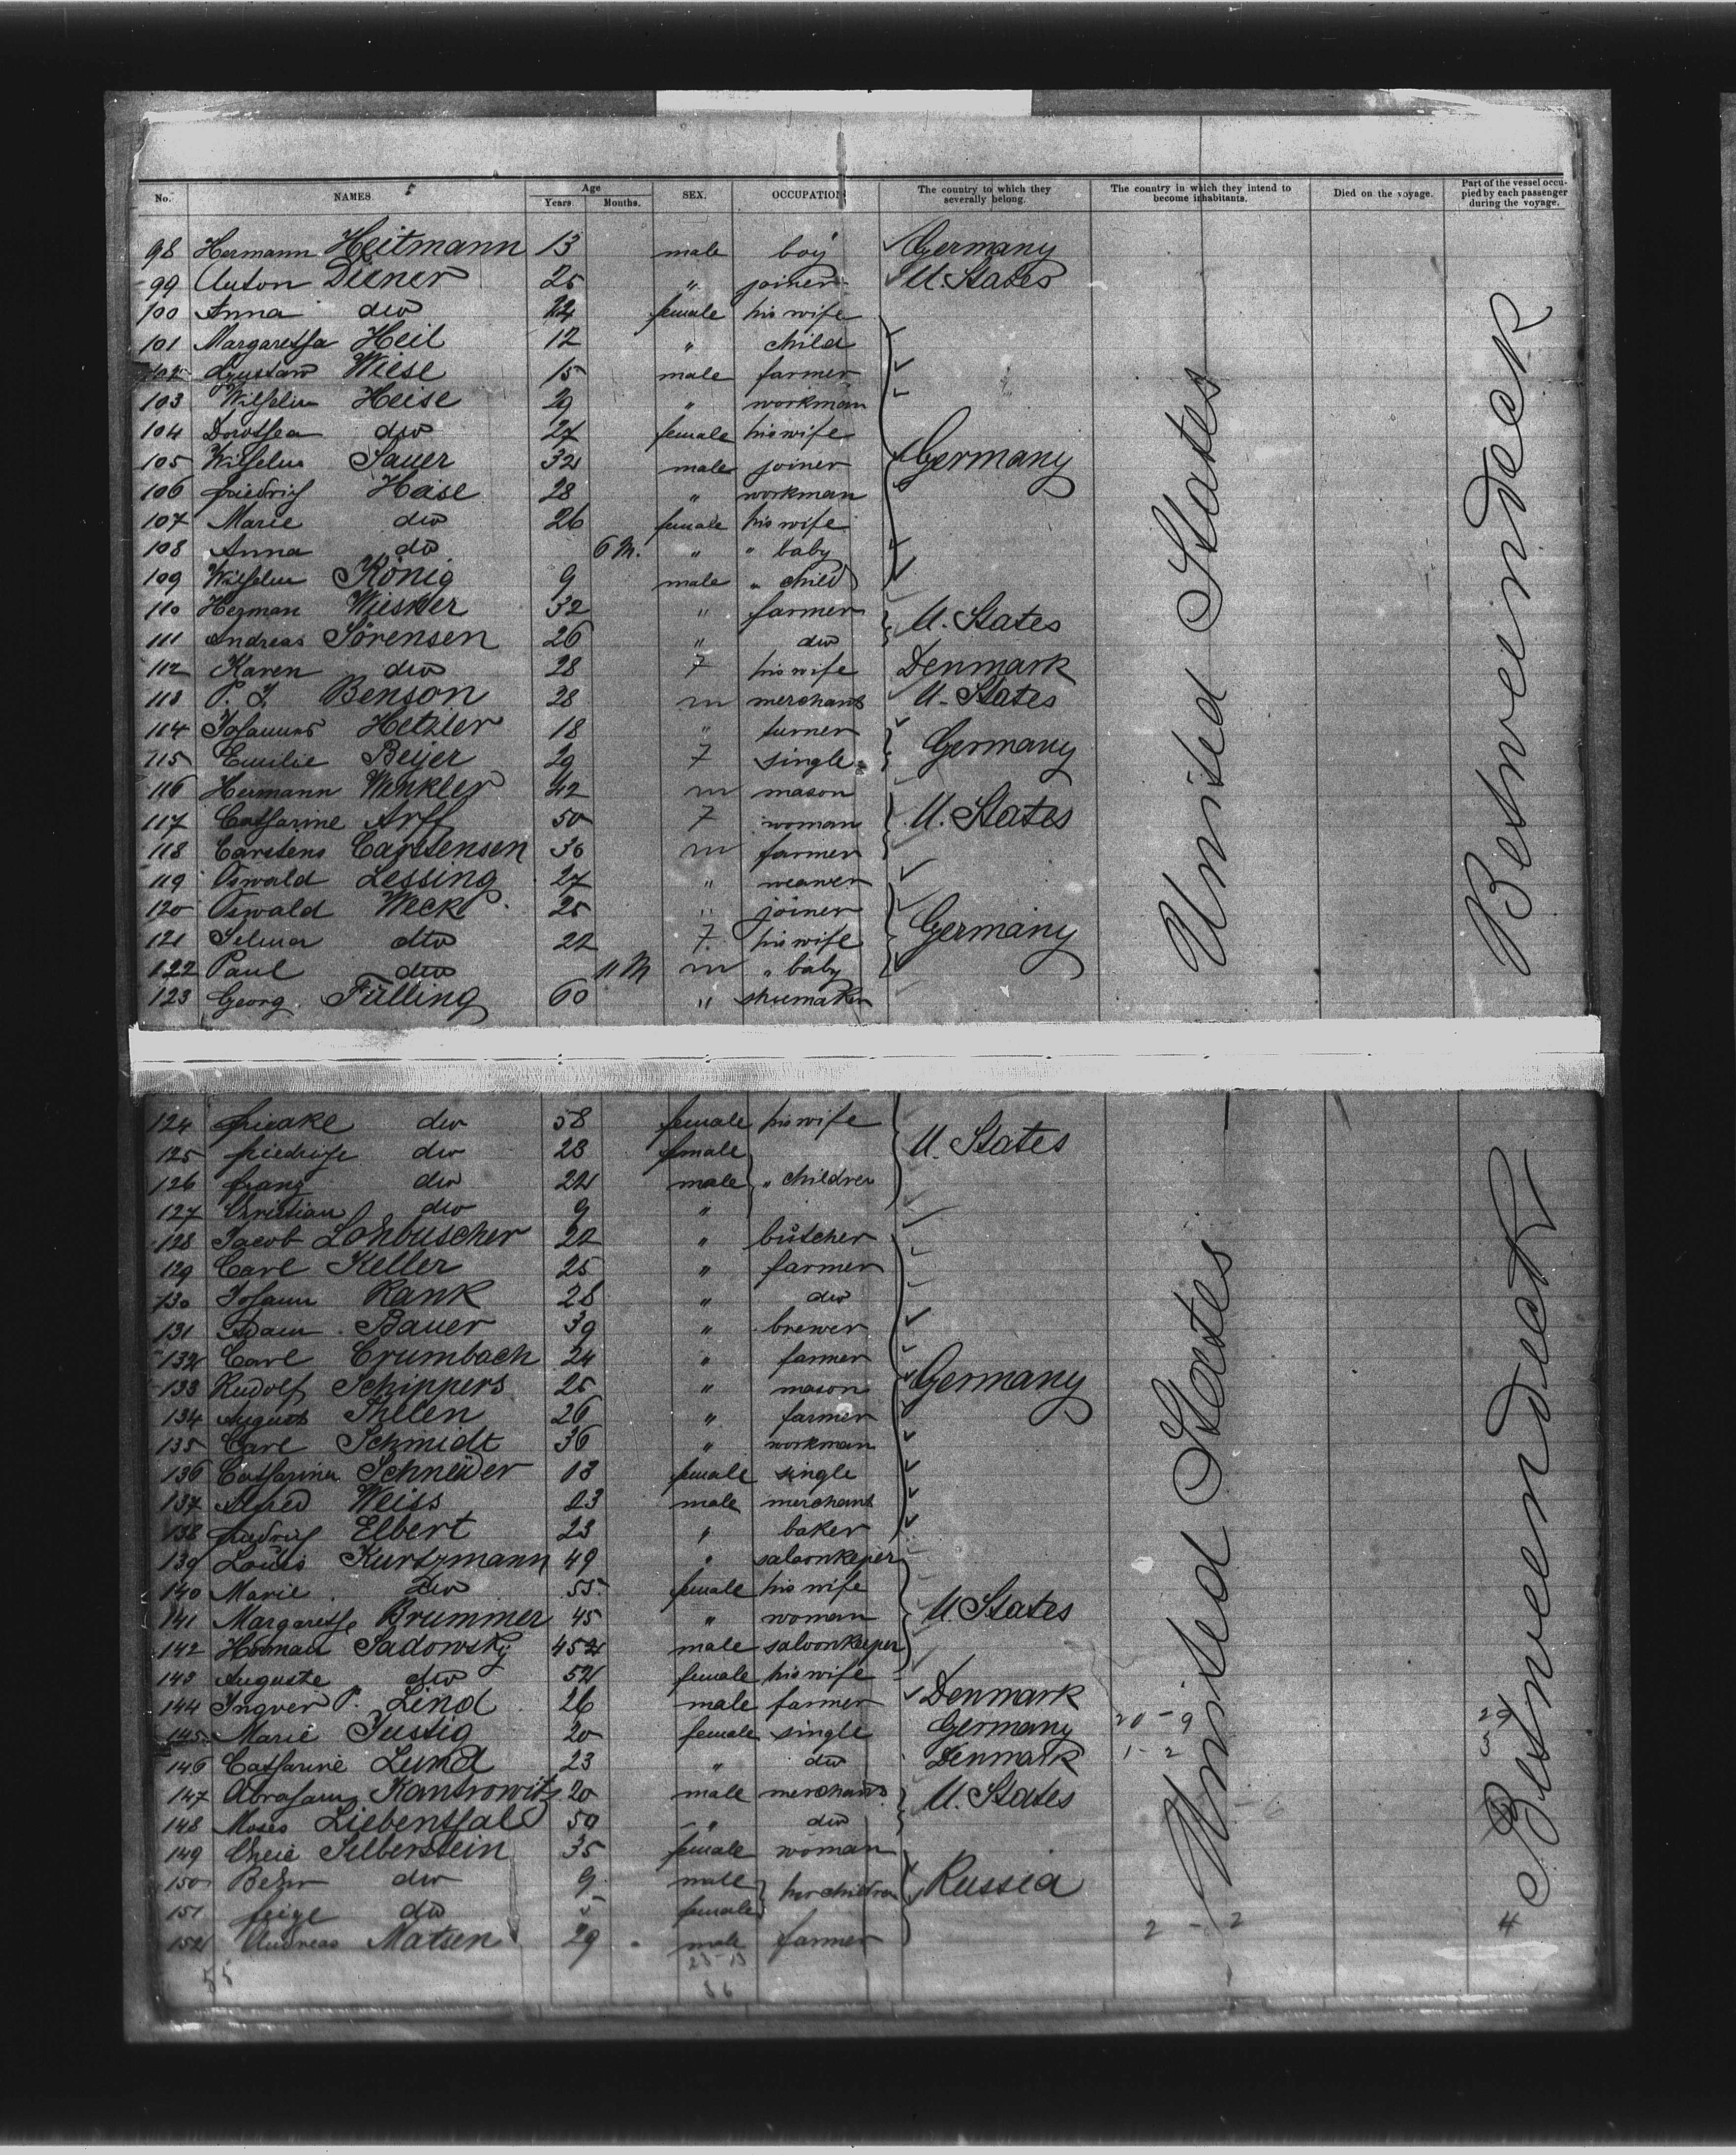 No. NAMES Age Years Months. SEX. OCCUPATION The country to which they severally belong. The country in which they intend to become inhabitants. Died on the voyage. Part of the vessel occupied by each passenger during the voyage.
98 Hermann Heitmann 13 male boy Germany
99 Anton Diener 25 " joiner U. States
100 Anna dto 24 female his wife
101 Margaretha Heil 12 " child
102 Gustav Wiese 15 male farmer
103 Wilhelm Heise 29 " workman
104 Dorothea dto 27 female his wife
105 Wilhelm Sauer 32 male joiner Germany
106 Friedrich Heise 28 " workman
107 Marie dto 26 female his wife
108 Anna dto 6 M. " " baby
109 Wilhelm König 9 male " child
110 Herman Wiesner 32 " farmer U. States
111 Andreas Sörensen 26 " dto
112 Karen dto 28 F his wife Denmark
113 P. J. Benson 28 m merchant U. States
114 Johannes Hetzler 18 " turner Germany
115 Emilie Beijer 29 F single
116 Hermann Winkler 42 m mason
117 Catharine Arff 50 F woman U. States
118 Carstens Carstensen 36 m farmer
119 Oswald Lessing 27 " weawer
120 Oswald Weck 25 " joiner Germany
121 Selma dto 22 F his wife
122 Paul dto 11 M m " baby
123 Georg Fülling 60 " shuemaker
United States
Betweendeck
124 dto 58 female his wife U. States
125 Friedrich dto 28 female
126 Franz dto 22 male " children
127 Christian dto 9 "
128 Jacob Lohbuscher 22 " butcher
129 Carl Keller 25 " farmer
130 Johann Rank 28 " dto
131 Adam Bauer 39 " brewer
132 Carl Crumbach 24 " farmer Germany
133 Rudolf Schippers 25 " mason
134 August Thelen 26 " farmer
135 Carl Schmidt 36 " workman
136 Catharina Schneider female single
137 Alfred Weiss 23 male merchant
138 Friedrich Elbert 23 " baker
139 Louis Kurtzmann 49 " saloonkeper
140 Marie dto 55 female his wife
141 Margarethe Brummer 45 " woman U. States
142 Sadowsky male saloonkeeper
143 Auguste dto 52 female his wife
144 Ingver P. Lind 26 male farmer Denmark
145 Marie Justig 20 female single Germany
146 Catharine Lund 23 " dto Denmark
147 Abraham Kantrowitz 20 male merchant U. States
148 Moses Liebenthal 50 " dto
149 Silberstein 35 female woman
150 dto 9 male her children Russia
151 Feige dto 5 female
152 Andreas Matsen 29 male farmer
United States
Betweendeck
20 - 9
1 - 2
2 - 2
4